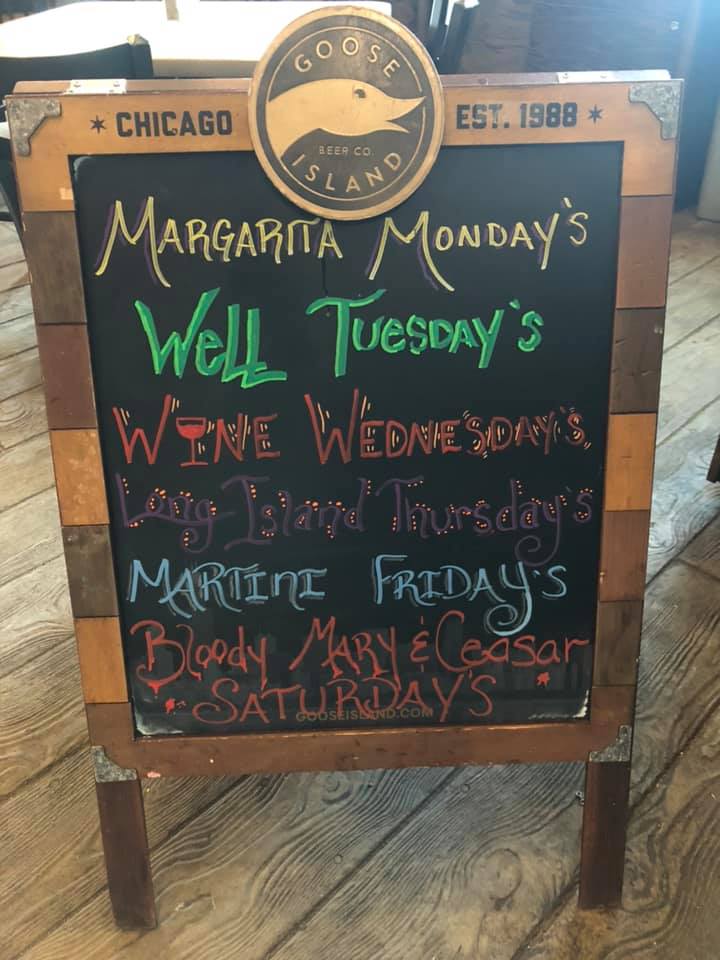 GOOSE
BEER CO.
ISLAND
CHICAGO
EST. 1988
MARGARITA MONDAY'S
WELL TUESDAY'S
WINE WEDNESDAY'S
Long Island Thursday's
MARTINI FRIDAY'S
Bloody MARY & Ceasar
SATURDAY'S
GOOSEISLAND.COM